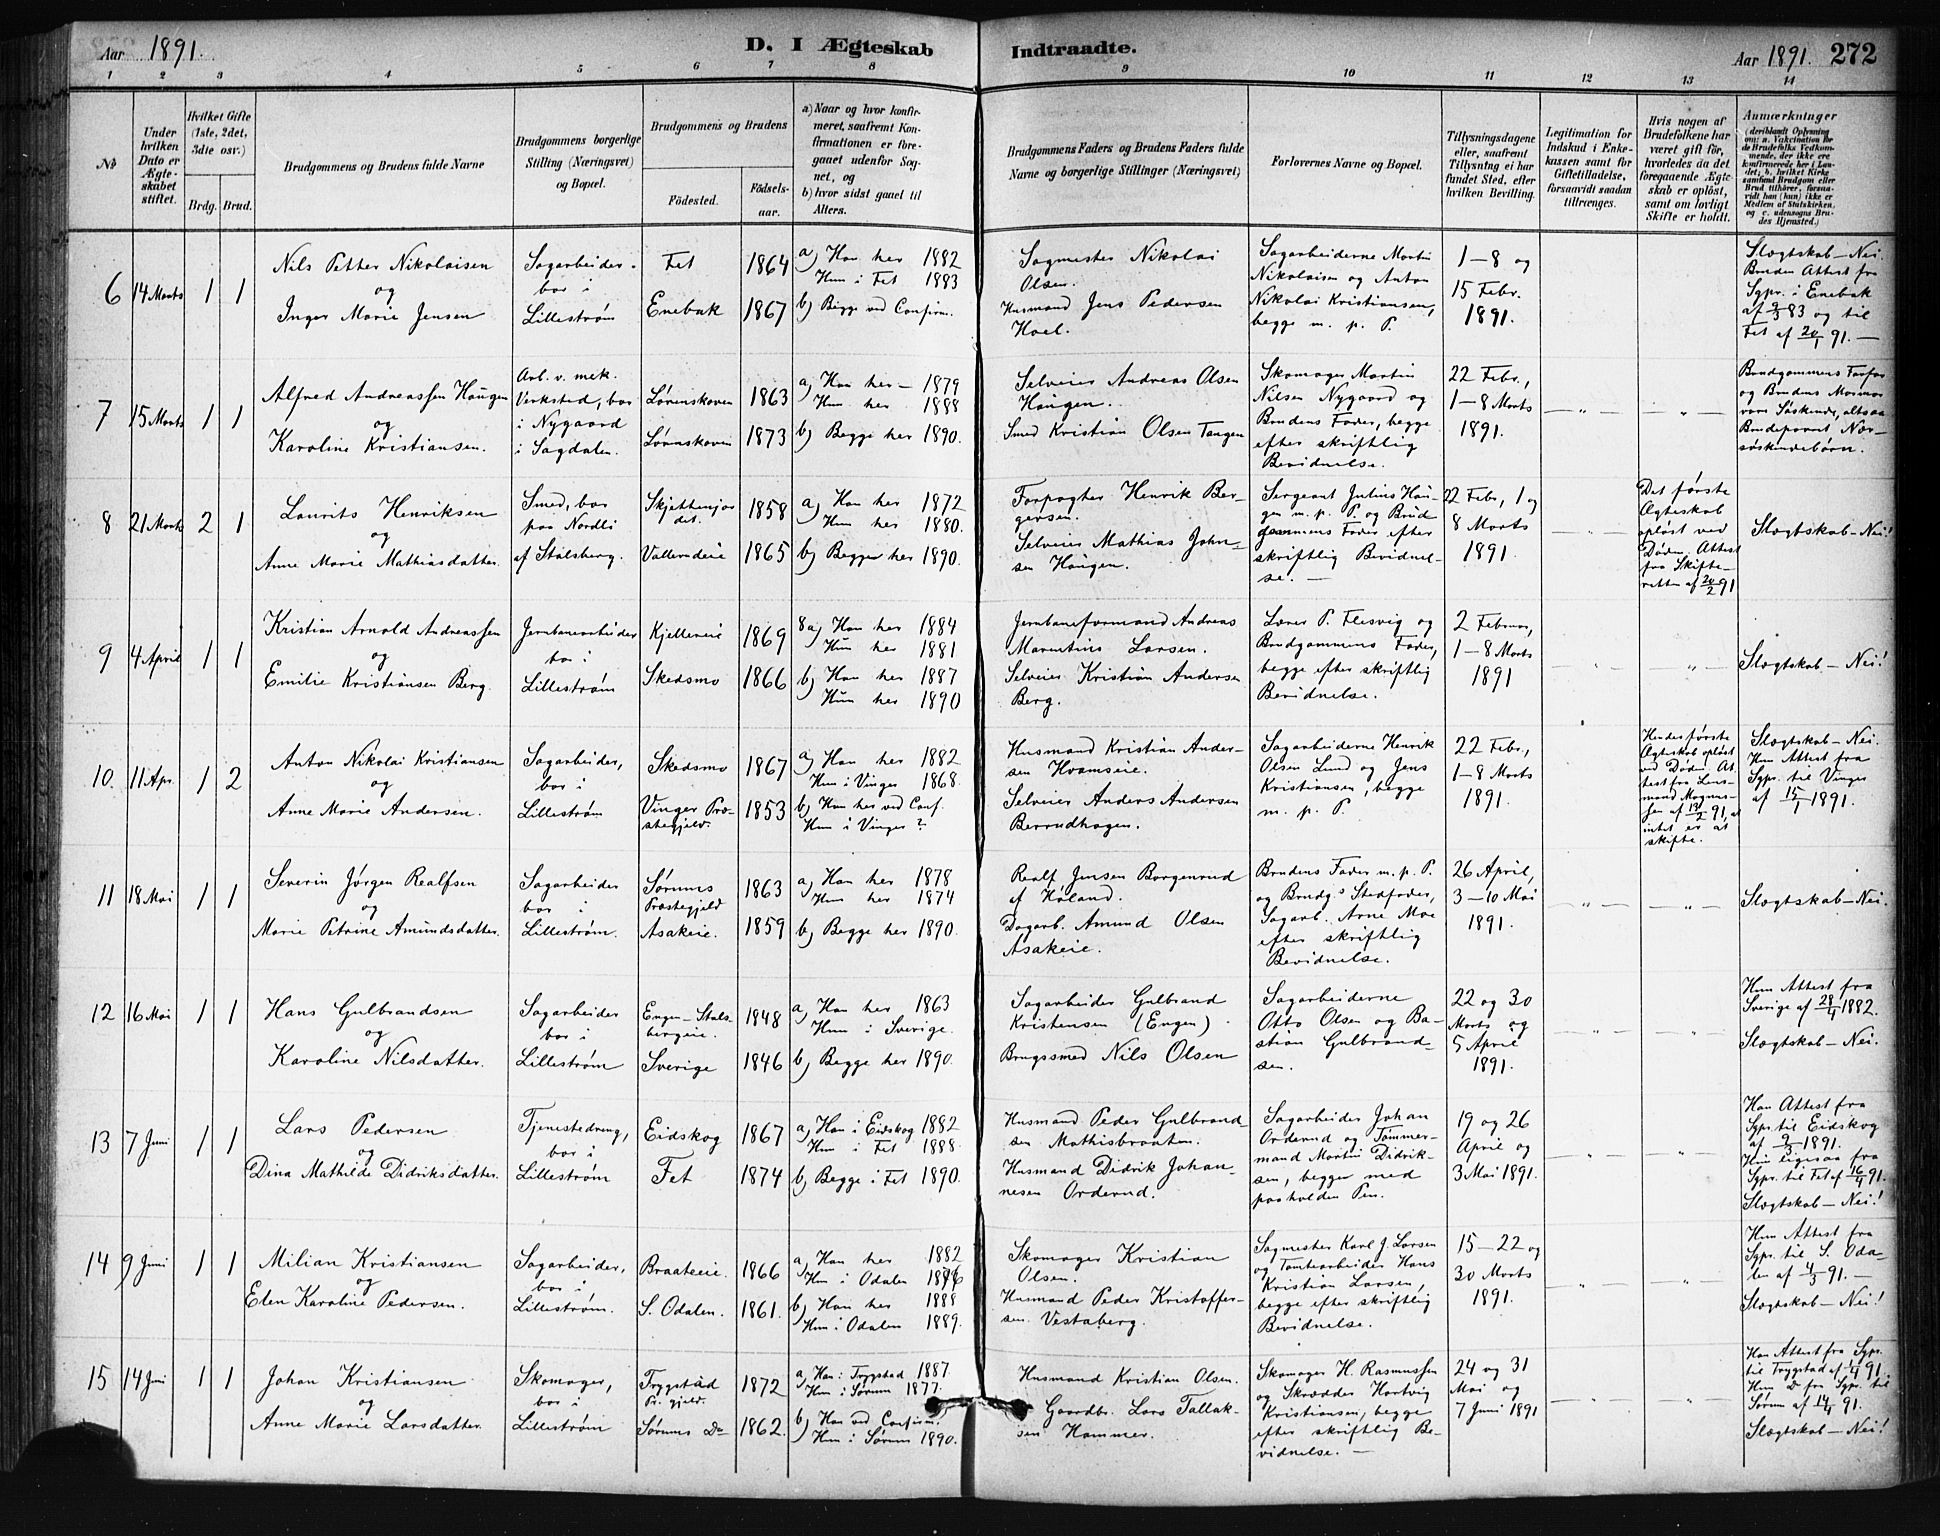 Aar 1891.
D. I Ægteskab Indtraadte.
Aar 1891. 272
1 2 3 4 5 6 7 8 9 10 11 12 13 14
No
Under hvilken Dato er Ægteskabet stiftet.
Hvilket Gifte (1ste, 2det, 3die osv.)
Brdg. Brud.
Brudgommens og Brudens fulde Navne
Brudgommens borgerlige Stilling (Næringsvei) og Bopæl.
Brudgommens og Brudens
Födested.
Födselsaar.
a) Naar og hvor konfirmeret, saafremt Konfirmationen er foregaaet udenfor Sognet, og
b) hvor sidst gaaet til Alters.
Brudgommens Faders og Brudens Faders fulde Navne og borgerlige Stillinger (Næringsvei)
Forlovernes Navne og Bopæl.
Tillysningsdagene eller, saafremt Tillysning ei har fundet Sted, efter hvilken Bevilling.
Legitimation for Indskud i Enkekassen samt for Giftetilladelse, forsaavidt saadan tiltrænges.
Hvis nogen af Brudefolkene har været gift för, hvorledes da det foregaaende Ægteskab er oplöst, samt om lovligt Skifte er holdt.
Anmærkninger
(deriblandt Oplysning om: a. Vakcination for de Brudefolks Vedkommende, der ikke ere konfirmerede her i Landet; b. hvilket Kirkesamfund Brudgom eller Brud tilhörer, forsaavidt han (hun) ikke er Medlem af Statskirken, og c. udensogns Brudes Hjemsted.)
6 14 Marts 1 1
Nils Petter Nikolaisen
og
Inger Marie Jensen
Sagarbeider
bor i
Lillestrøm
Fet 1864
Enebak 1867
a) Han her 1882
Hun i Fet 1883
b) Begge ved Confirm.
Sagmester Nikolai
Olsen.
Husmand Jens Pedersen
Hoel.
Sagarbeiderne Martin
Nikolaisen og Anton
Nikolai Kristiansen,
begge m. p. P.
1–8 og
15 Febr.
1891.
Slægtskab – Nei.
Bruden Attest fra
Sgpr. i Enebak
af 9/3 83 og til
Fet af 20/1 91. –
7 15 Marts 1 1
Alfred Andreassen Haugen
og
Karoline Kristiansen.
Arb. v. mek.
Verksted, bor
i Nygaard
i Sagdalen.
Lørenskoven 1863
Lørenskoven 1873
a) Han her – 1879
Hun her 1888
b) Begge her 1890.
Selveier Andreas Olsen
Haugen.
Smed Kristian Olsen Tangen
Skomager Martin
Nilsen Nygaard og
Brudens Fader, begge
efter skriftlig
Bevidnelse.
22 Febr.,
1–8 Marts
1891.
–„–
„
Brudgommens Farfar
og Brudens Mormor
vare Søskende, altsaa
Brudeparret Nær-
søskendebørn.
8 21 Marts 2 1
Laurits Henriksen
og
Anne Marie Mathiasdatter.
Smed, bor
paa Nordli
af Stalsberg.
Skjettenjor
det. 1858
Vallerudeie 1865
a) Han her 1872
Hun her 1880.
b) Begge her 1890.
Forpagter Henrik Ber-
gersen.
Selveier Mathias John-
sen Haugen.
Sergeant Julius Hau-
gen m. p. P. og Brud
gommens Fader efter
skriftlig Bevidnel-
se. –
22 Febr, 1 og
8 Marts
1891.
–„–
Det første
Ægteskab
opløst ved
Døden. Attest
fra Skifte-
retten af 20/2 91
Slægtskab – Nei!
9 4 April 1 1
Kristian Arnold Andreassen
og
Emilie Kristiansen Berg.
Jernbanearbeider
bor i
Lillestrøm
Kjellereie 1869
Skedsmo 1866
8a) Han her 1884
Hun her 1881
b) Han her 1887
Hun her 1890
Jernbaneformand Andreas
Marentius Larsen.
Selveier Kristian Andersen
Berg.
Lærer P. Flesvig og
Brudgommens Fader,
begge efter skriftlig
Bevidnelse.
2 Februar,
1–8 Marts
1891
–„–
„
Slægtskab – Nei!
10. 11 Apr. 1 2
Anton Nikolai Kristiansen
og
Anne Marie Andersen.
Sagarbeider,
bor i
Lillestrøm
Skedsmo 1867
Vinger Præ-
stegjeld. 1853
a) Han her 1882
Hun i Vinger 1868.
b) Han her ved Conf.
Hun i Vinger ?
Husmand Kristian Ander-
sen Hvamseie.
Selveier Anders Andersen
Berrudhagen.
Sagarbeiderne Henrik
Olsen Lund og Jens
Kristiansen, begge
m. p. P.
22 Febr.,
1–8 Marts
1891.
Hendes første
Ægteskab opløst
ved Døden. At
test fra Lens-
mand Magnus-
sen af 19/2 91, at
intet er at
skifte.
Slægtskab – Nei.
Hun Attest fra
Sgpr. til Vinger
af 15/1 1891.
11 18 Mai 1 1
Severin Jørgen Realfsen
og
Marie Petrine Amundsdatter.
Sagarbeider
bor i
Lillestrøm.
Sørums
Præstegjeld 1863
Asakeie. 1859
a) Han her 1878
Hun her 1874
b) Begge her 1890.
Realf Jensen Borgenrud
af Høland.
Dagarb. Amund Olsen
Asakeie.
Brudens Fader m. p. P.
og Brudgs Stedfader,
Sagarb. Arne Moe
efter skriftlig
Bevidnelse.
26 April,
3–10 Mai
1891.
–„–
–„–
Slægtskab – Nei.
12 16 Mai 1 1
Hans Gulbrandsen
og
Karoline Nilsdatter.
Sagarbeider
bor i
Lillestrøm
Engen – Stals-
bergeie. 1848
Sverige 1846
a) Han her 1863
Hun i Sverige.
b) Begge her 1890.
Sagarbeider Gulbrand
Kristensen (Engen).
Brugssmed Nils Olsen
Sagarbeiderne
Otto Olsen og Ba-
stian Gulbrand-
sen.
22 og 30
Marts og
5 April
1891.
–„–
–„–
Hun Attest fra
Sverige af 28/4 1882.
Slægtskab – Nei.
13 7 Juni 1 1
Lars Pedersen
og
Dina Mathilde Didriksdatter.
Tjenestedreng,
bor i
Lillestrøm
Eidskog 1867
Fet 1874
a) Han i Eidskog 1882
Hun i Fet 1888.
b) Begge i Fet 1890.
Husmand Peder Gulbrand-
sen Mathisbraaten.
Husmand Didrik Johan-
nesen Orderud.
Sagarbeider Johan
Orderud og Tømmer-
mand Martin Didrik-
sen, begge med
paaholden Pen.
19 og 26
April og
3 Mai 1891.
–„–
–„–
Han Attest fra
Sgpr. til Eidskog
af 9/3 1891.
Hun ligesaa fra
Sgpr. til Fet af 16/4 91.
Slægtskab – Nei!
14 9 Juni 1 1
Milian Kristiansen
og
Elen Karoline Pedersen.
Sagarbeider,
bor i
Lillestrøm.
Braateeie. 1866
S. Odalen. 1861.
a) Han her 1882
Hun i Odalen 1876
b) Han her 1888
Hun i Odalen 1889.
Skomager Kristian
Olsen.
Husmand Peder Kristoffer-
sen Vestaberg.
Sagmester Karl J. Larsen
og Tomtearbeider Hans
Kristian Larsen,
begge efter skriftlig
Bevidnelse.
15–22 og
30 Marts
1891.
–„–
„
Hun Attest fra
Sgpr. til S. Oda-
len af 4/3 91. –
Slægtskab – Nei!
15 14 Juni 1 1
Johan Kristiansen
og
Anne Marie Larsdatter.
Skomager,
bor i
Lillestrøm
Trygstad
Pr. gjeld. 1872
Sørums Do 1862.
a) Han i Trygstad 1887
Hun i Sørum 1877.
b) Han ved Confirm.
Hun i Sørum 1890.
Husmand Kristian Olsen.
Gaardbr. Lars Tallak-
sen Hammer.
Skomager H. Rasmussen
og Skrædder Hartvig
Kristiansen, begge
efter skriftlig Be-
vidnelse. –
24 og 31
Mai og
7 Juni 1891
–„–
Han Attest fra Sgpr.
til Trygstad af 1/4 91.
Hun Do fra Sgpr. til
Sørum af 14/4 91.
Slægtskab – Nei!